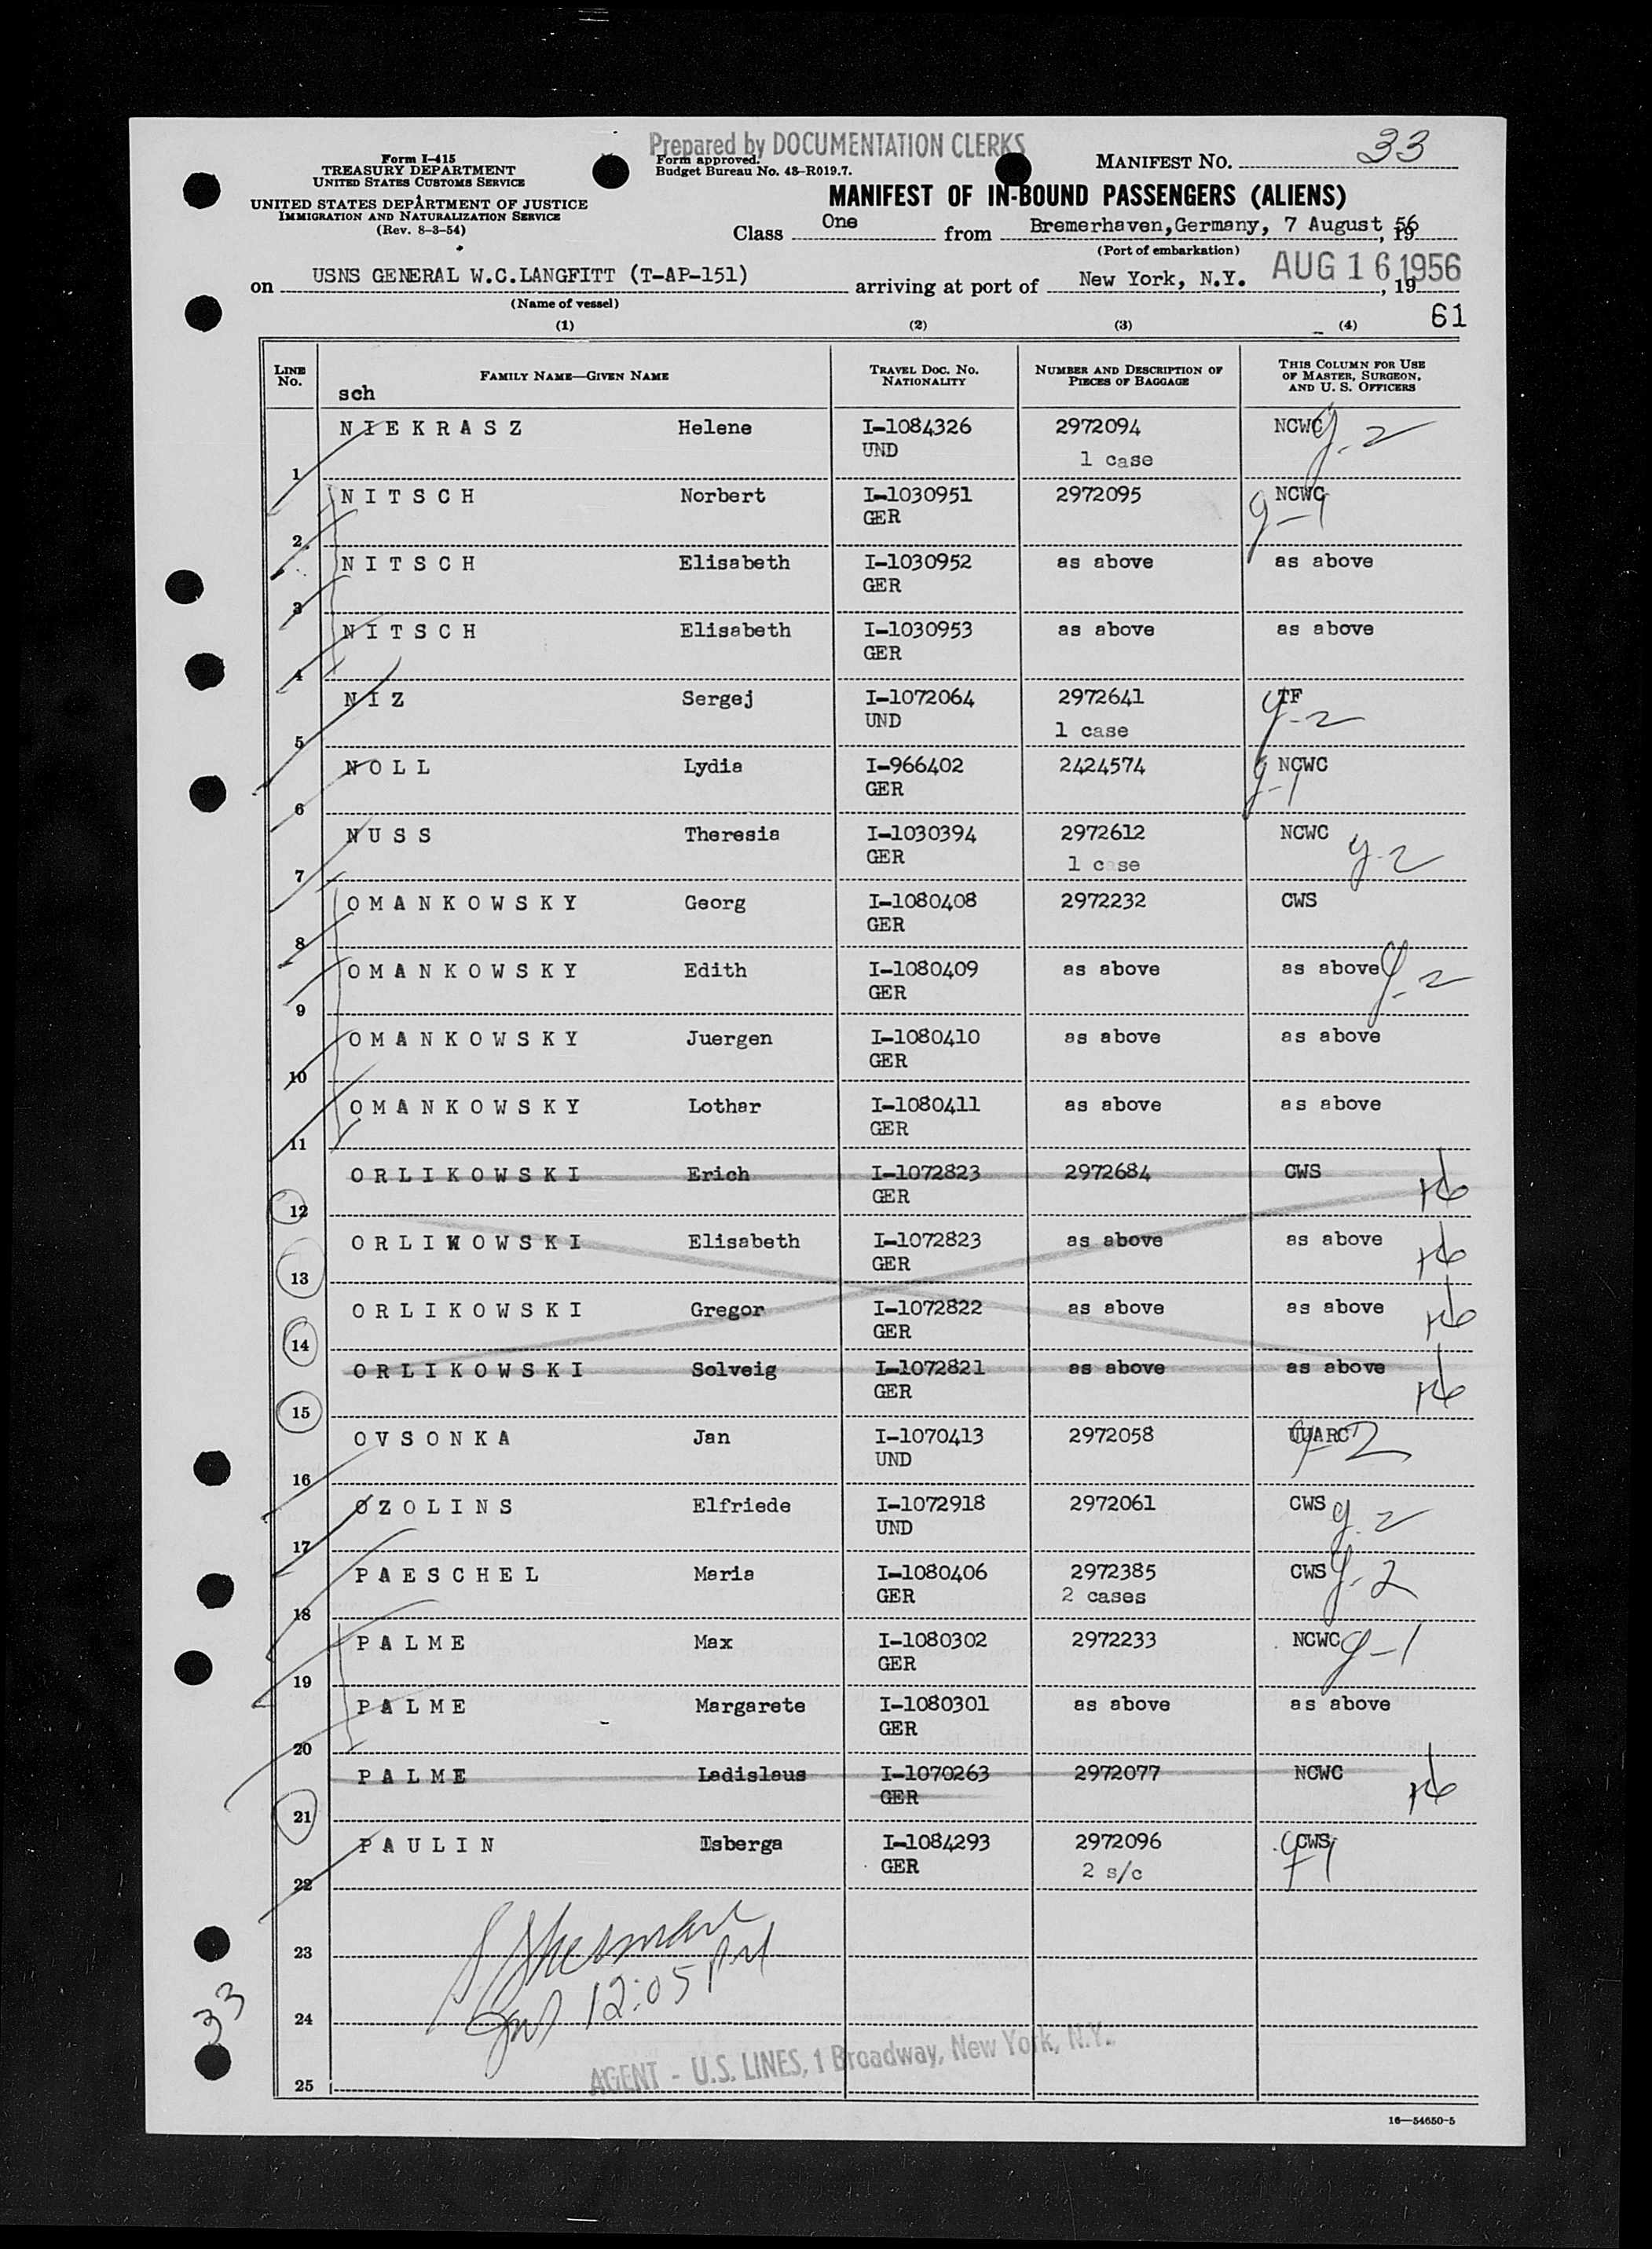 Prepared by DOCUMENTATION CLERKS
Form I-415
TREASURY DEPARTMENT
UNITED STATES CUSTOMS SERVICE
UNITED STATES DEPARTMENT OF JUSTICE
IMMIGRATION AND NATURALIZATION SERVICE
(Rev. 8-3-54)
Form approved.
Budget Bureau No. 43-R019.7.
MANIFEST NO. 33
MANIFEST OF IN-BOUND PASSENGERS (ALIENS)
Class One from Bremerhaven,Germany, 7 August, 1956
(Port of embarkation)
on USNS GENERAL W.C.LANGFITT (T-AP-151) arriving at port of New York, N.Y. AUG 16 1956, 19
(Name of vessel)
61
(1) (2) (3) (4)
LINE NO. FAMILY NAME—GIVEN NAME TRAVEL DOC. NO. NATIONALITY NUMBER AND DESCRIPTION OF PIECES OF BAGGAGE THIS COLUMN FOR USE OF MASTER, SURGEON, AND U. S. OFFICERS
sch
1 NIEKRASZ Helene I-1084326 UND 2972094 1 case NCWC g-2
2 NITSCH Norbert I-1030951 GER 2972095 NCWC g-1
3 NITSCH Elisabeth I-1030952 GER as above as above
4 NITSCH Elisabeth I-1030953 GER as above as above
5 NIZ Sergej I-1072064 UND 2972641 1 case TF g-2
6 NOLL Lydia I-966402 GER 2424574 NCWC g-1
7 NUSS Theresia I-1030394 GER 2972612 1 case NCWC g-2
8 OMANKOWSKY Georg I-1080408 GER 2972232 CWS
9 OMANKOWSKY Edith I-1080409 GER as above as above g-2
10 OMANKOWSKY Juergen I-1080410 GER as above as above
11 OMANKOWSKY Lothar I-1080411 GER as above as above
12 ORLIKOWSKI Erich I-1072823 GER 2972684 CWS
13 ORLIKOWSKI Elisabeth I-1072823 GER as above as above
14 ORLIKOWSKI Gregor I-1072822 GER as above as above
15 ORLIKOWSKI Solveig I-1072821 GER as above as above
16 OVSONKA Jan I-1070413 UND 2972058 UUARC g-2
17 OZOLINS Elfriede I-1072918 UND 2972061 CWS g-2
18 PAESCHEL Maria I-1080406 GER 2972385 2 cases CWS g-2
19 PALME Max I-1080302 GER 2972233 NCWC g-1
20 PALME Margarete I-1080301 GER as above as above
21 PALME Ladislaus I-1070263 GER 2972077 NCWC
22 PAULIN Isberga I-1084293 GER 2972096 2 s/c CWS g-1
23
24
25
12:05 PM
33
AGENT - U.S. LINES, 1 Broadway, New York, N.Y.
16—54650-5